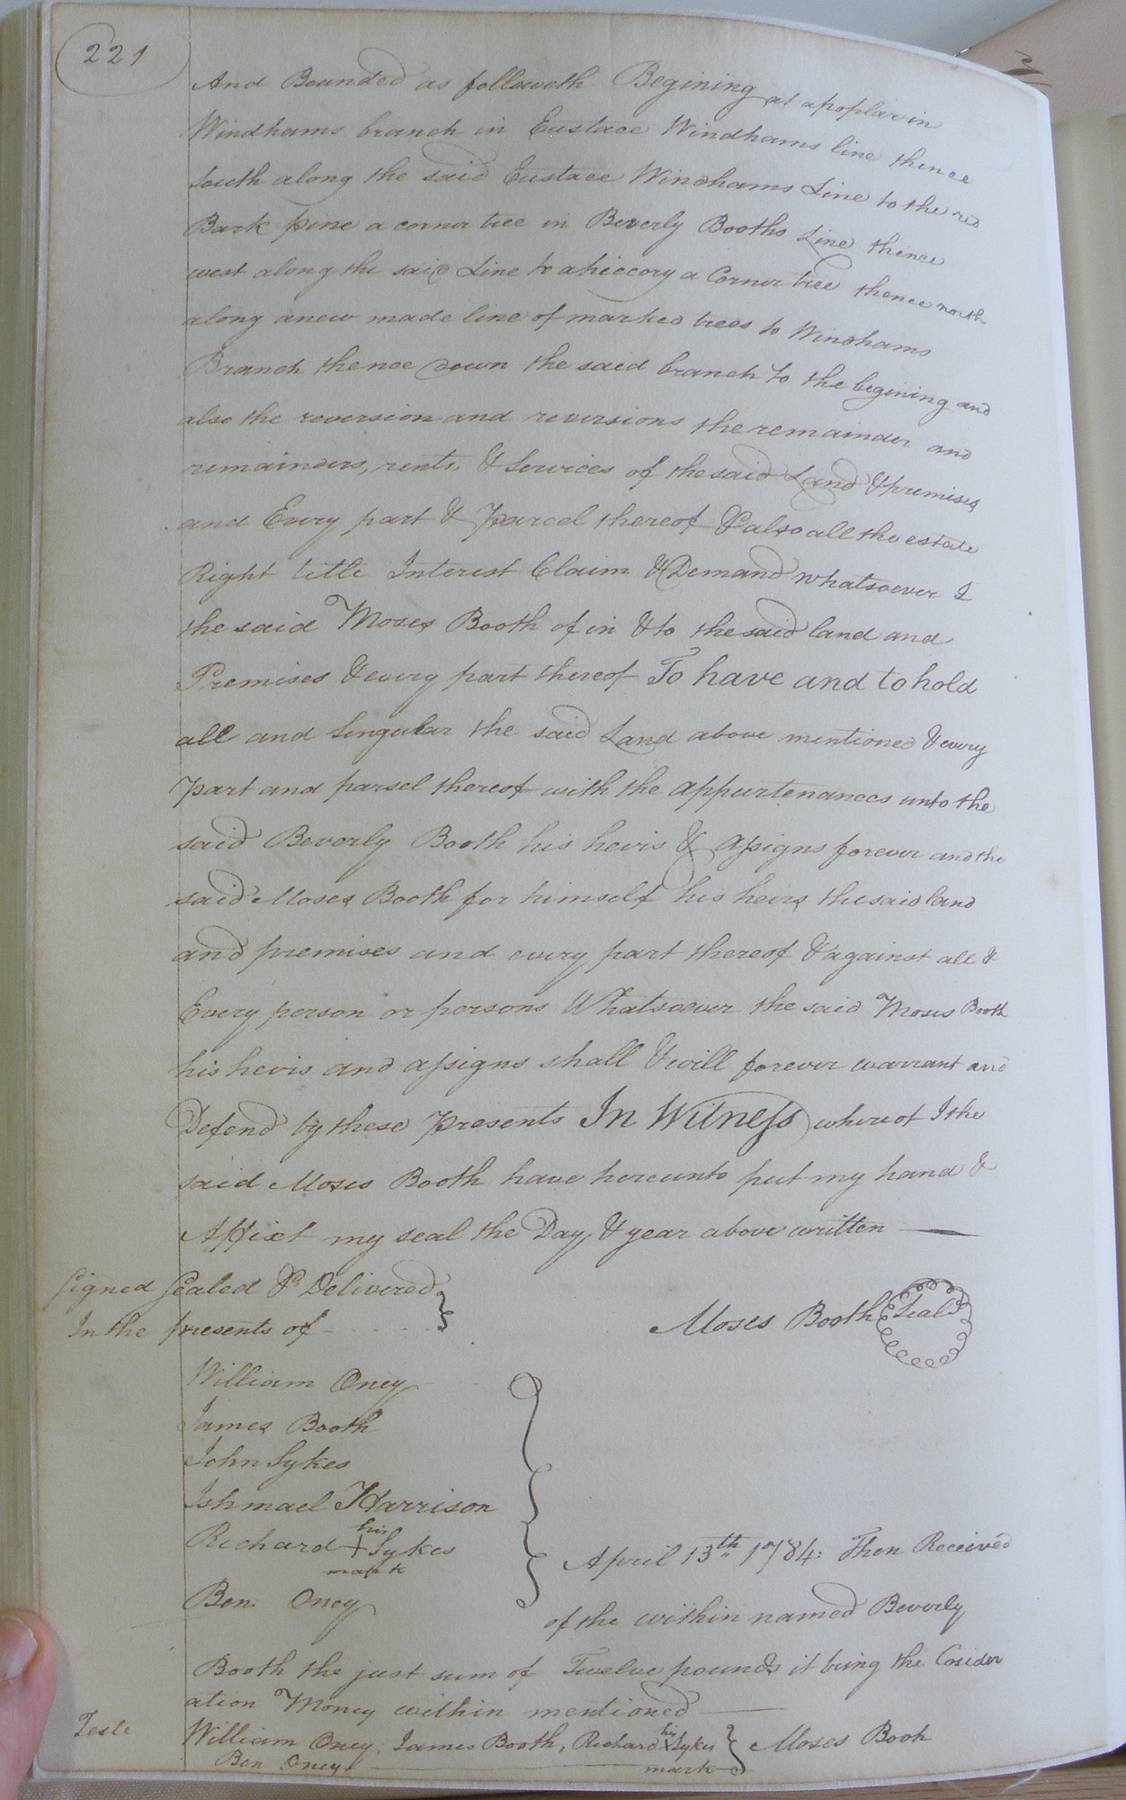 221
And Bounded as followeth Begining at a poplar in
Windhams branch in Eustace Windhams line thence
South along the said Eustace Windhams Line to the red
Bark pine a corner tree in Beverly Booths Line thence
west along the said Line to a hiccory a Corner tree thence north
along a new made line of marked trees to Windhams
Branch thence down the said branch to the begining and
also the reversion and reversions the remainder and
remainders, rents, & Services of the said Land & premises
and Every part & Parcel thereof & also all the estate
Right title Interest Claim & Demand whatsoever I
the said Moses Booth of in & to the said land and
Premises & every part thereof To have and to hold
all and Singular the said Land above mentioned & every
Part and parsel thereof with the appurtenances unto the
said Beverly Booth his hevis & assigns forever and the
said Moses Booth for himself his heirs the said land
and premises and every part thereof & against all &
Every person or persons Whatsoever the said Moses Booth
his hevis and assigns shall & will forever warrant and
Defend by these Presents In Witness whereof I the
said Moses Booth have hereunto put my hand &
Affixt my seal the Day & year above written
Signed Sealed & Delivered
In the presents of
Moses Booth Seal
William Oney
James Booth
John Sykes
Ishmael Harrison
Richard his + mark Sykes
Ben. Oney
April 13th 1784: Then Received
of the within named Beverly
Booth the just sum of Twelve pounds it being the Consider
ation Money within mentioned
Teste
William Oney, James Booth, Richard his x mark Sykes
Moses Booh
Ben Oney